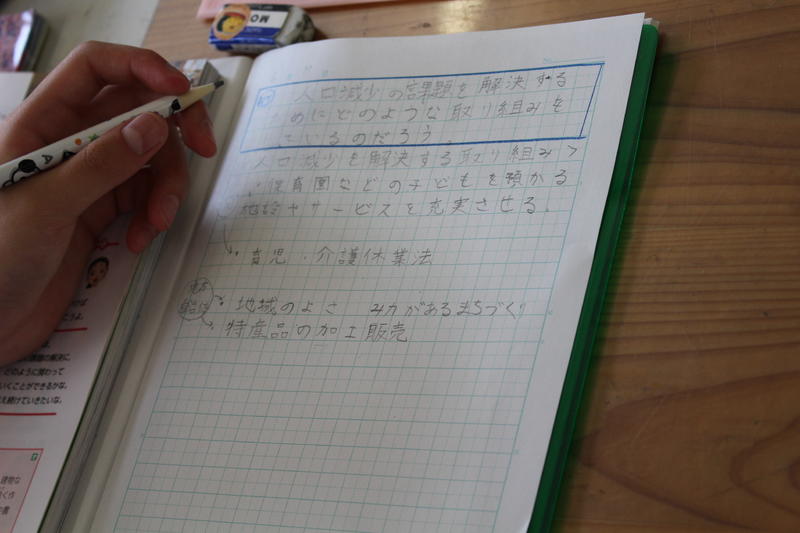 MO
人口減少の課題を解決する
めにどのような取り組みを
ているのだろう。
人口減少を解決する取り組み>
・保育園などの子どもを預かる
やサービスを充実させる。
・育児・介護休業法
・地域のよさ みカがあるまちづくり
・特産品の加工販売
の解決に
どのように関わって
いくことができるかな。
え続けていきたいな。
建物な